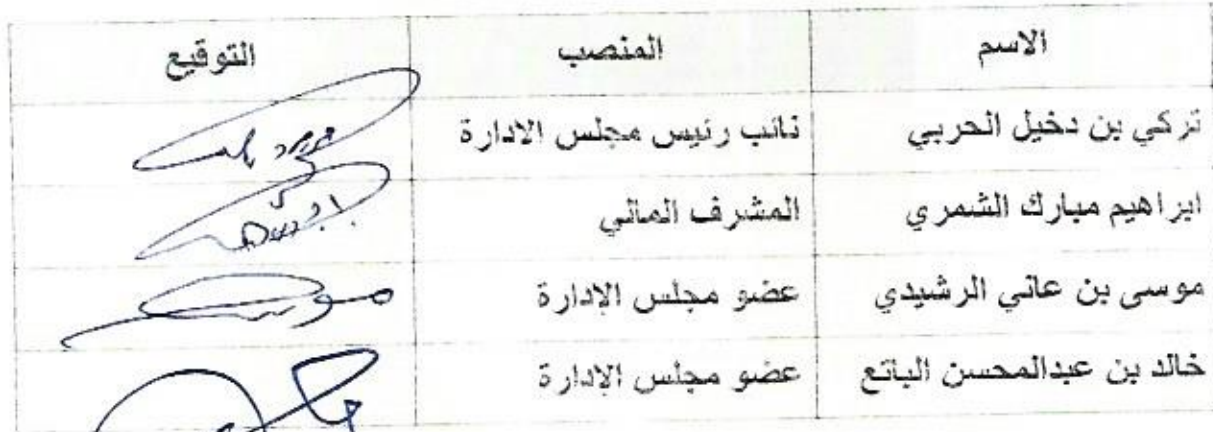 الاسم المنصب التوقيع
تركي بن دخيل الحربي نائب رئيس مجلس الادارة
ابراهيم مبارك الشمري المشرف المالي
موسى بن عاني الرشيدي عضو مجلس الإدارة
خالد بن عبدالمحسن الباتع عضو مجلس الإدارة